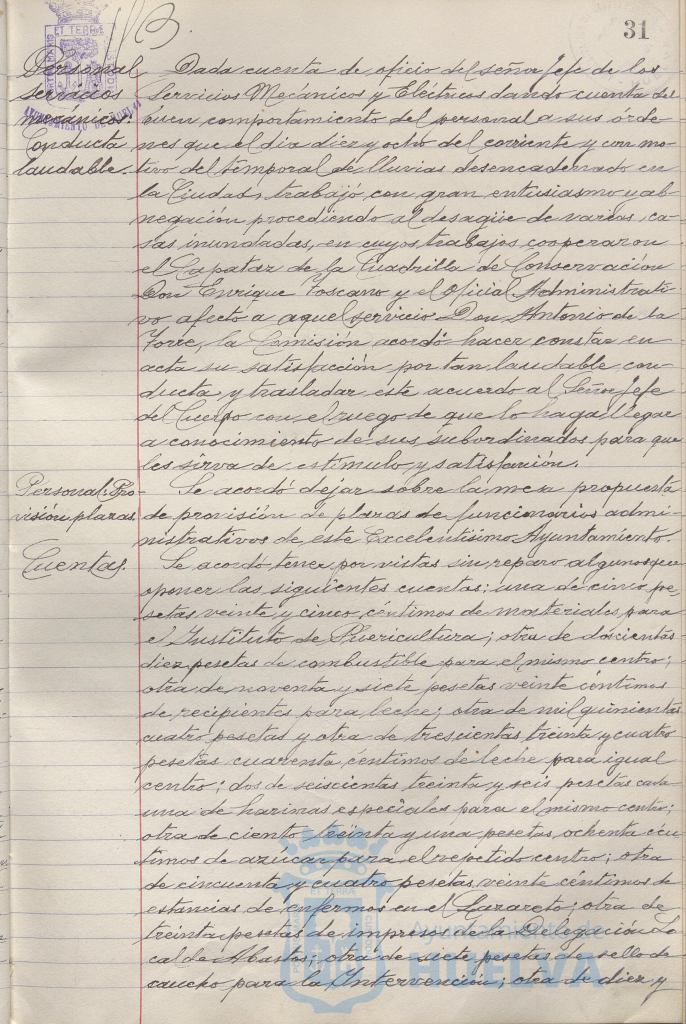 31
Personal
servicios
mecánicos.
Conducta
laudable.
Dada cuenta de oficio del señor Jefe de los
Servicios Mecánicos y Eléctricos dando cuenta del
buen comportamiento del personal a sus órde-
nes que el dia diez y ocho del corriente y con mo-
tivo del temporal de lluvias desencadenado en
la Ciudad, trabajó con gran entusiasmo y ab-
negación procediendo al desagüe de varias ca-
sas inundadas, en cuyos trabajos cooperaron
el Capataz de la Cuadrilla de Conservación
Don Enrique Toscano y el Oficial Administrati-
vo afecto a aquel servicio Don Antonio de la
Torre, la Comisión acordó hacer constar en
acta su satisfacción por tan laudable con-
ducta y trasladar este acuerdo al Señor Jefe
del Cuerpo con el ruego de que lo haga llegar
a conocimiento de sus subordinados para que
les sirva de estímulo y satisfación.
Personal: Pro-
visión plazas.
Se acordó dejar sobre la mesa propuesta
de provisión de plazas de funcionarios admi-
nistrativos de este Excelentísimo Ayuntamiento.
Cuentas.
Se acordó tener por vistas sin reparo alguno que
oponer las siguientes cuentas: una de cinco pe-
setas veinte y cinco céntimos de materiales para
el Instituto de Puericultura; otra de doscientas
diez pesetas de combustible para el mismo centro;
otra de noventa y siete pesetas veinte céntimos
de recipientes para leche; otra de mil quinientas
cuatro pesetas y otra de trescientas treinta y cuatro
pesetas cuarenta céntimos de leche para igual
centro; dos de seiscientas treinta y seis pesetas cada
una de harinas especiales para el mismo centro;
otra de ciento treinta y una pesetas, ochenta cén-
timos de azúcar para el repetido centro; otra
de cincuenta y cuatro pesetas, veinte céntimos de
estancias de enfermos en el Lazareto; otra de
treinta pesetas de impresos de la Delegación Lo-
cal de Abastos; otra de siete pesetas de sello de
caucho para la Intervención; otra de diez y
Ayuntamiento de
HUELVA